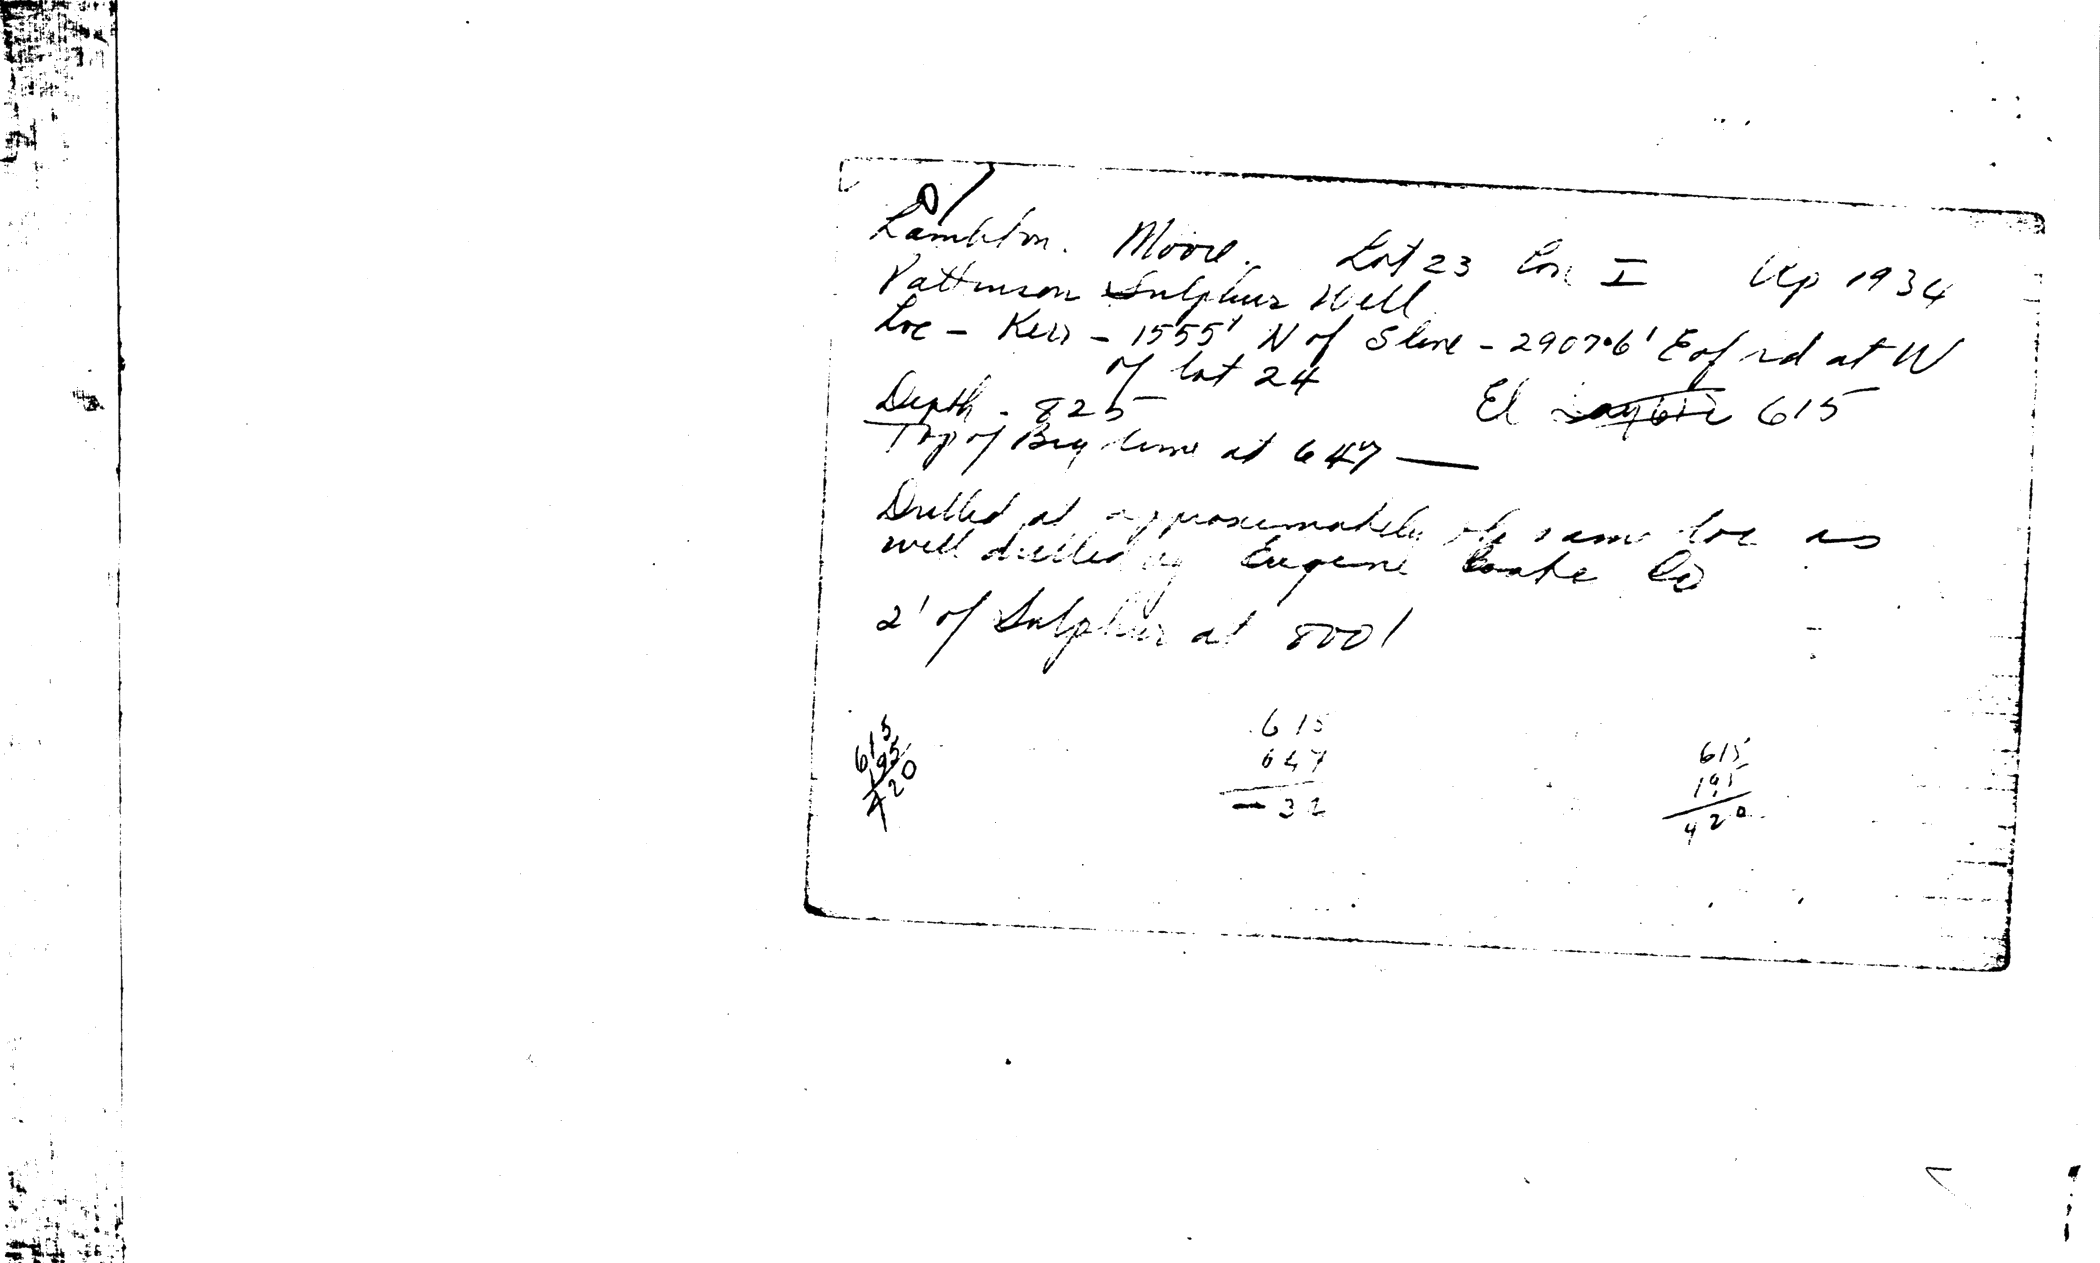 Lambton. Moore. Lot 23 Con I Ap 1934
Pattinson Sulphur Well
Loc - Kerr - 1555' N of S line - 2907.6' E of rd at W
of lot 24
Depth - 825 El 615
Top of Big Lime at 647 —
Drilled at approximately the same loc as
well drilled by Eugene Coste Co
2' of Sulphur at 800'
615
195
420
615
647
-32
615
195
420